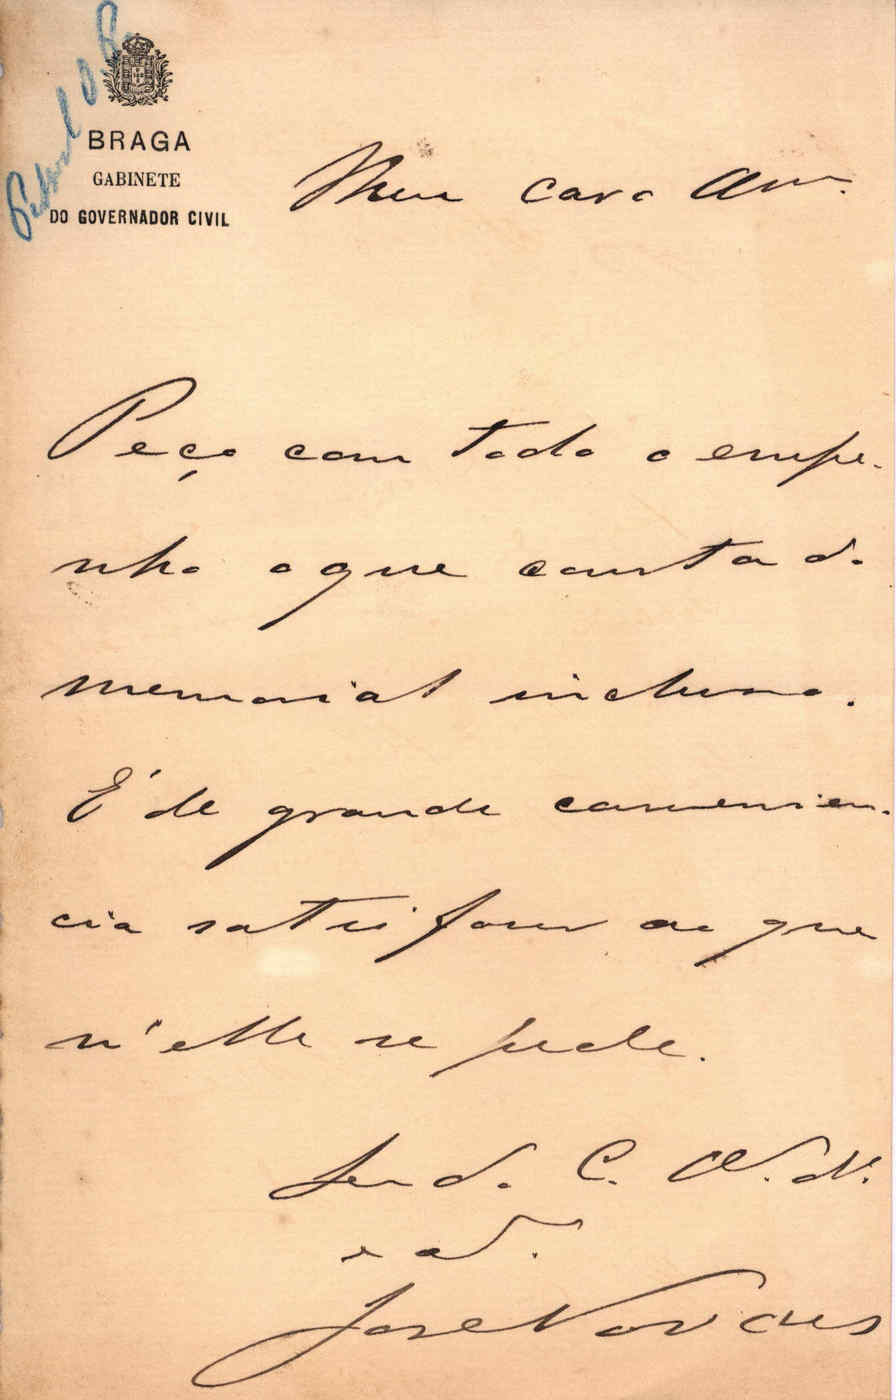 BRAGA
GABINETE
DO GOVERNADOR CIVIL
Meu caro Amº.
Peço com todo o empe-
nho o que consta do
memorial incluso.
É de grande convenien-
cia satisfazer ao que
n'elle se pede.
Seu do C.
José Novaes